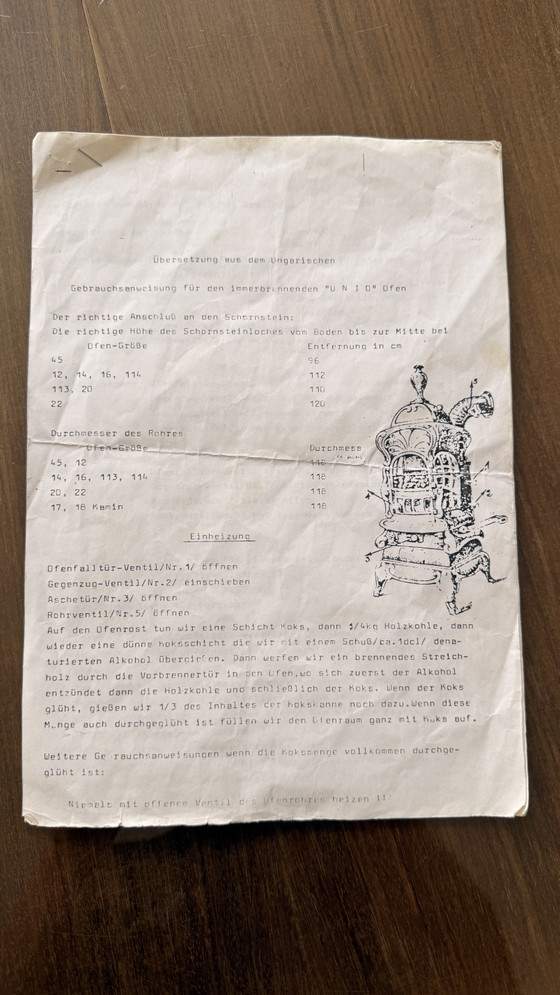 Übersetzung aus dem Ungarischen
Gebrauchsanweisung für den immerbrennenden "U N I O" Ofen
Der richtige Anschluß an den Schornstein:
Die richtige Höhe des Schornsteinloches vom Boden bis zur Mitte bei
Ofen-Größe Entfernung in cm
45 96
12, 14, 16, 114 112
113, 20 110
22 120
Durchmesser des Rohres
Ofen-Größe Durchmess
45, 12 118
14, 16, 113, 114 118
20, 22 118
17, 18 Kamin 118
Einheizung
Ofenfalltür-Ventil/Nr.1/ öffnen
Gegenzug-Ventil/Nr.2/ einschieben
Aschetür/Nr.3/ öffnen
Rohrventil/Nr.5/ öffnen
Auf den Ofenrost tun wir eine Schicht Koks, dann 1/4kg Holzkohle, dann
wieder eine dünne koksschicht die wir mit einem Schuß/ca.1dcl/ dena-
turierten Alkohol übergießen. Dann werfen wir ein brennendes Streich-
holz durch die Vorbrennertür in den Ofen,wo sich zuerst der Alkohol
entzündet dann die Holzkohle und schließlich der Koks. Wenn der Koks
glüht, gießen wir 1/3 des Inhaltes der kokskanne noch dazu.Wenn diese
Menge auch durchgeglüht ist füllen wir den Ofenraum ganz mit Koks auf.
Weitere Gebrauchsanweisungen wenn die Koksmenge vollkommen durchge-
glüht ist:
Niemals mit offenem Ventil des Ofenrohres heizen !!